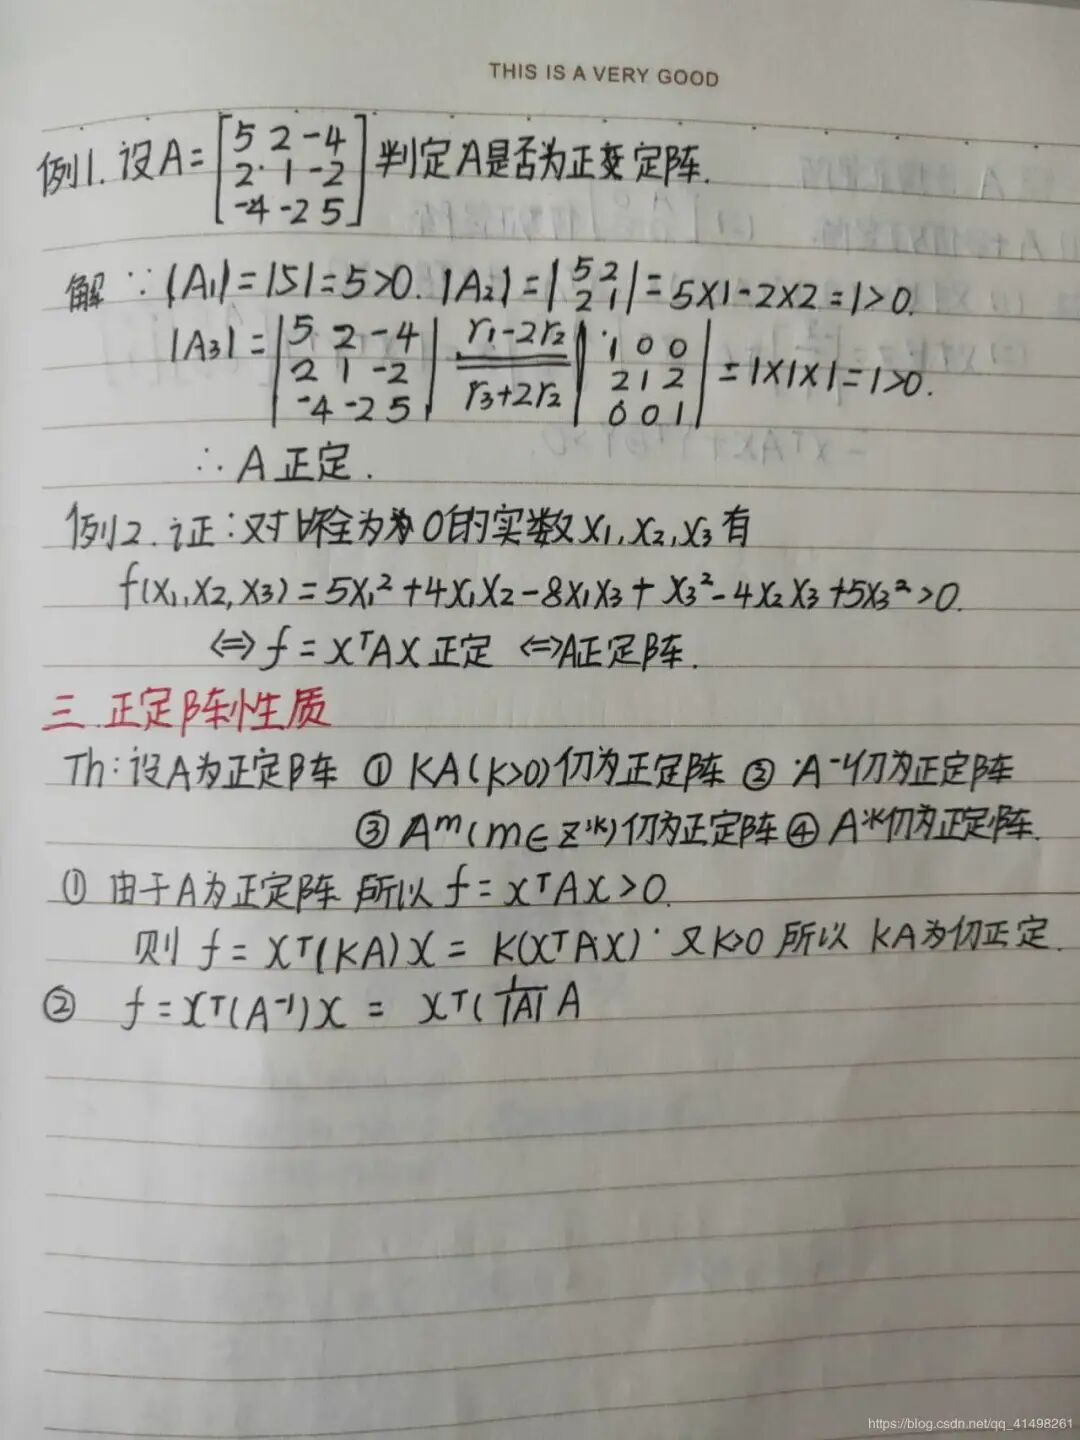 THIS IS A VERY GOOD
例1. 设A = [5 2 -4
2 1 -2
-4 -2 5] 判定A是否为正定阵.
解 ∵ |A₁| = |5| = 5>0. |A₂| = |5 2
2 1| = 5X1-2X2 = 1>0.
|A₃| = |5 2 -4
2 1 -2
-4 -2 5| r₁-2r₂
r₃+2r₂ |1 0 0
2 1 2
0 0 1| = 1X1X1 = 1>0.
∴ A 正定.
例2. 证: 对 不全为 0的实数 X₁, X₂, X₃ 有
f(X₁, X₂, X₃) = 5X₁² + 4X₁X₂ - 8X₁X₃ + X₃² - 4X₂X₃ + 5X₃² > 0.
⇔ f = XᵀAX 正定 ⇔ A正定阵.
三. 正定阵性质
Th: 设A为正定阵 ① KA(K>0)仍为正定阵 ② A⁻¹仍为正定阵
③ Aᵐ(m∈Z*)仍为正定阵 ④ A*仍为正定阵.
① 由于A为正定阵 所以 f = XᵀAX > 0.
则 f = Xᵀ(KA)X = K(XᵀAX) 又K>0 所以 KA为仍正定.
② f = Xᵀ(A⁻¹)X = Xᵀ( 1/|A| A
https://blog.csdn.net/qq_41498261